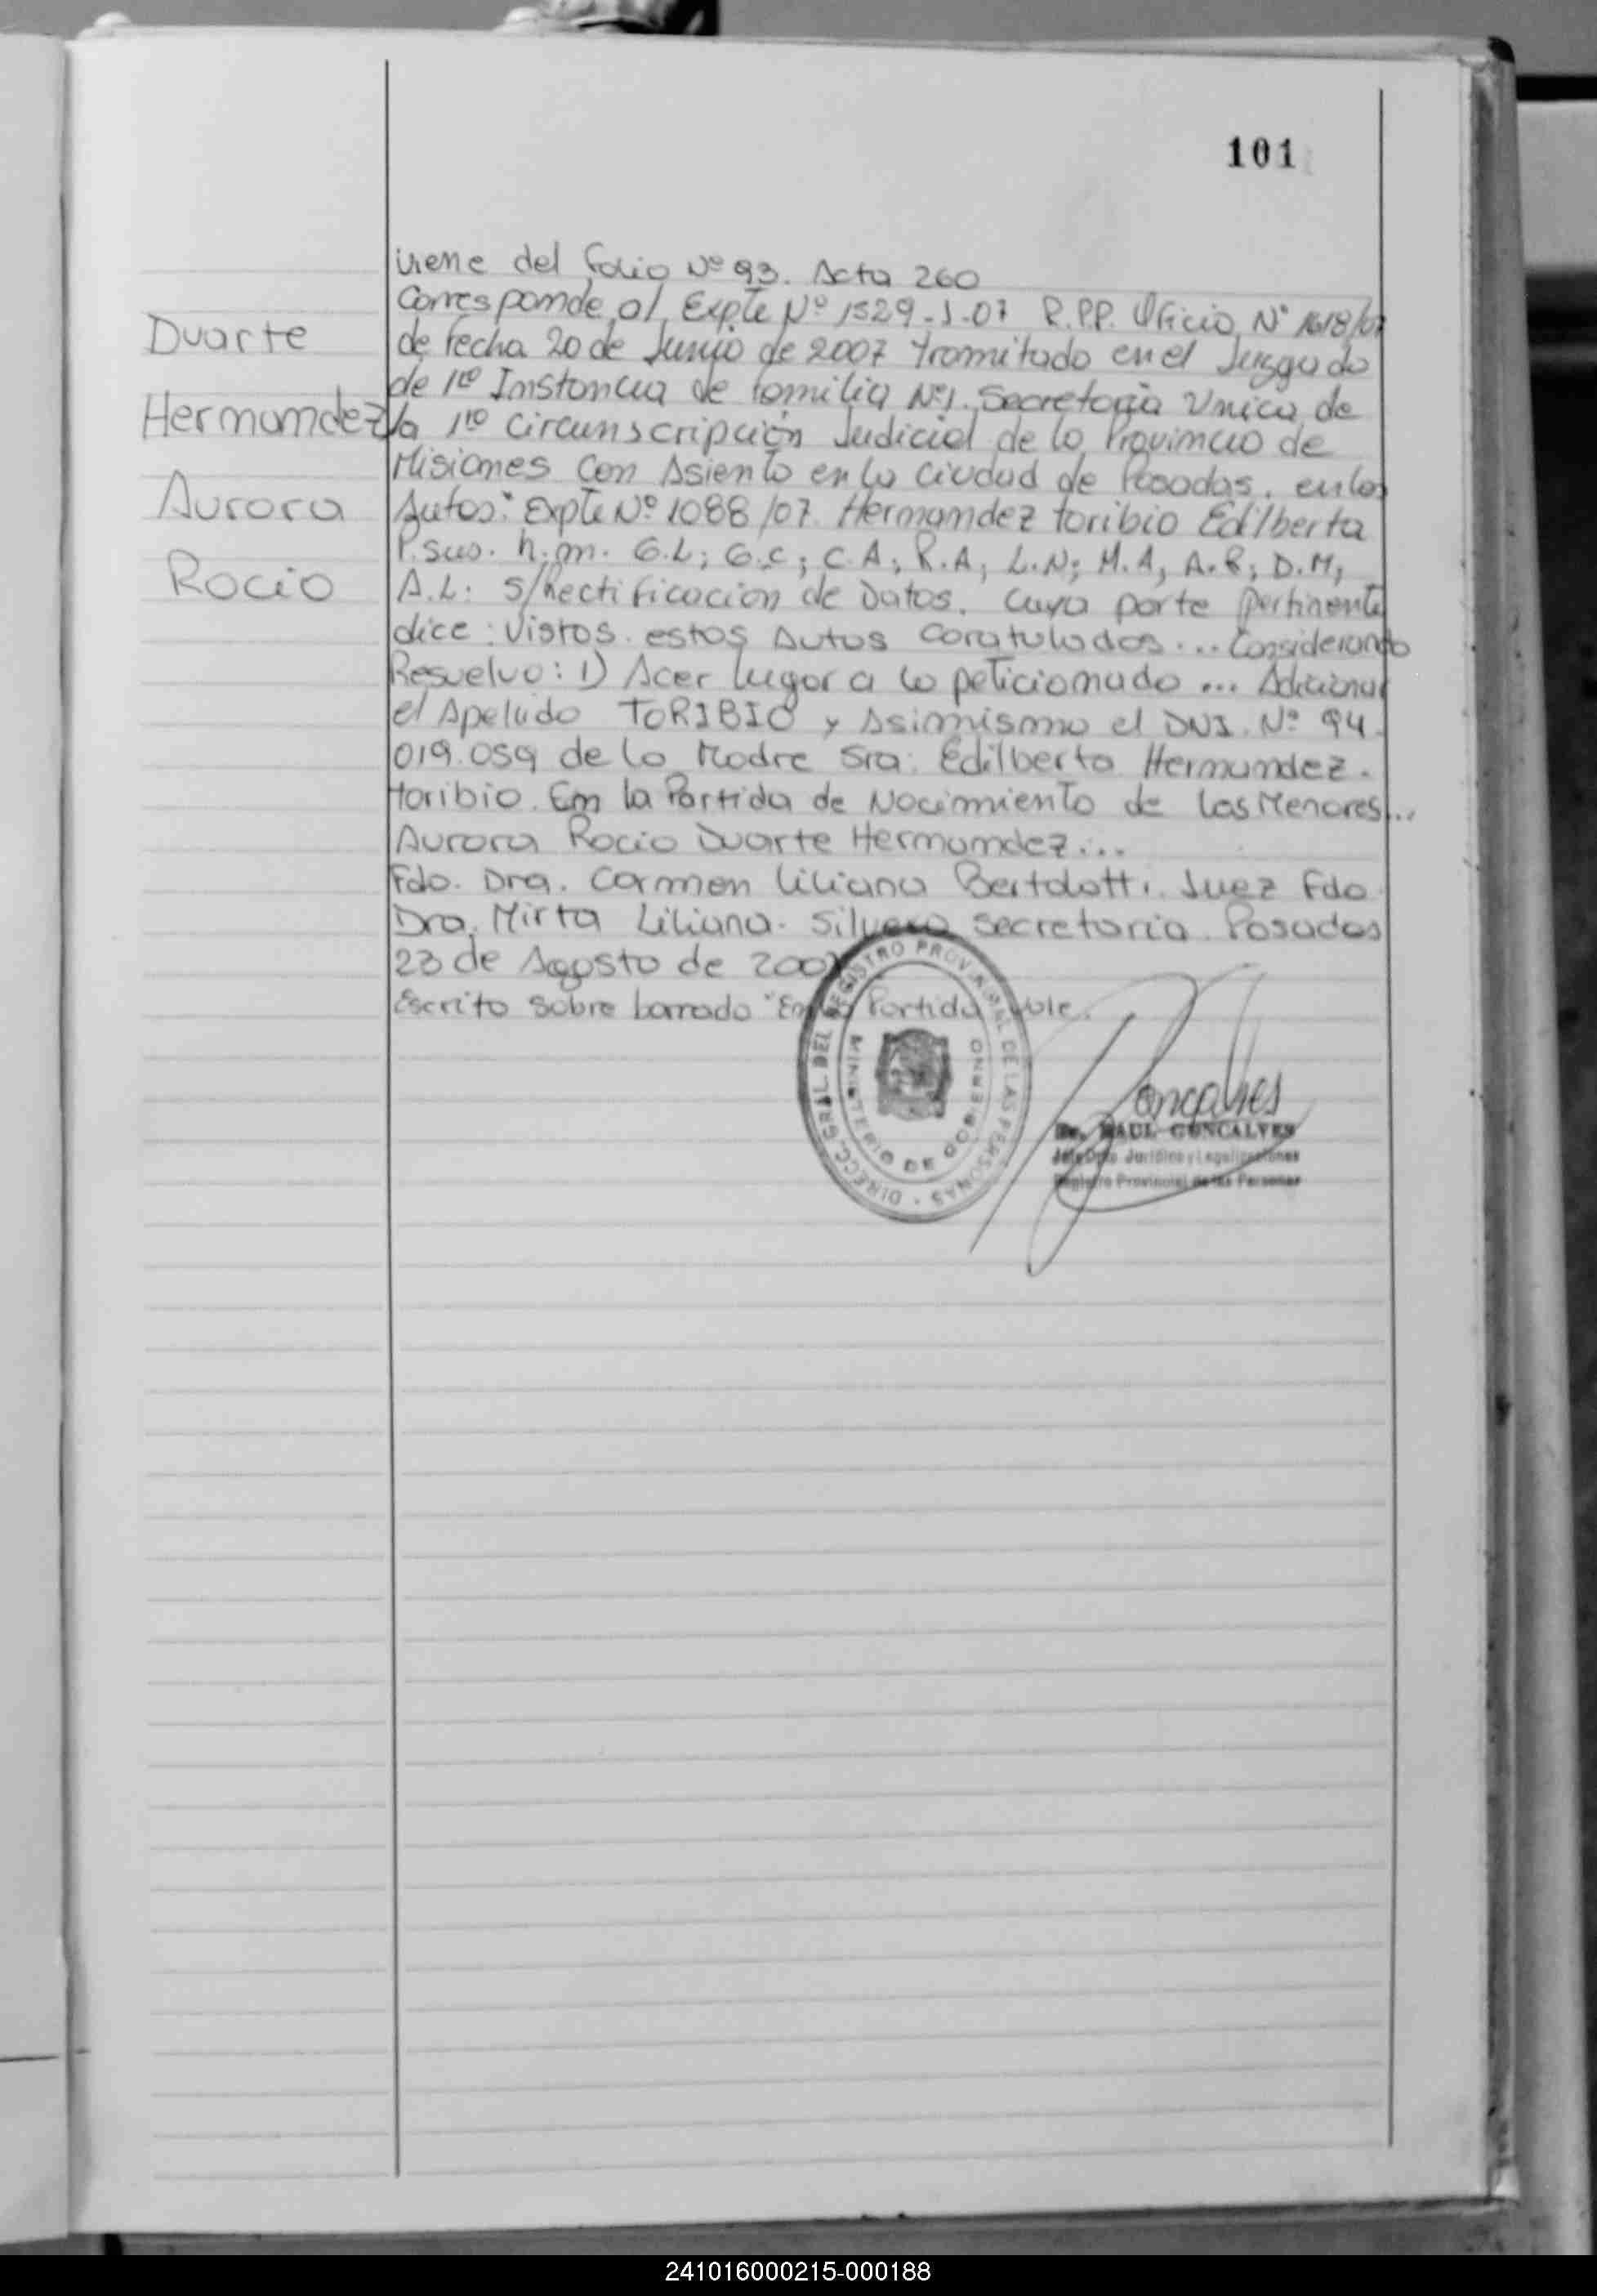 101
viene del folio Nº 93. Acta 260
Corresponde al Expte Nº 1529-J-07 R.P.P. Oficio Nº 1618/07
de fecha 20 de Junio de 2007 tramitado en el Jusgado
de 1ra Instancia de familia Nº1. Secretaria Unica de
la 1ra Circunscripción Judicial de la Provincia de
Misiones Con Asiento en la Ciudad de Posadas. en los
Autos: Expte Nº 1088/07. Hernandez toribio Edilberta
P. sus. h.m. G.L; G.C; C.A; R.A; L.N; M.A, A.R; D.M;
A.L: S/Rectificacion de Datos. Cuya parte pertinente
dice: Vistos. estos Autos Caratulados... Considerando
Resuelvo: 1) Acer lugar a lo peticionado... Adicionar
el Apelido TORIBIO y Asimismo el DNI. Nº 94.
019.059 de la Madre Sra: Edilberta Hernandez.
toribio. En la Partida de Nacimiento de los Menores...
Aurora Rocio Duarte Hernandez...
Fdo. Dra. Carmen Liliana Bertolotti. Juez Fdo
Dra. Mirta Liliana. Silvero Secretaria. Posadas
23 de Agosto de 2007
Escrito sobre borrado "En la Partida vale.
Duarte
Hernandez
Aurora
Rocio
DIRECC. GRAL. DEL REGISTRO PROVINCIAL DE LAS PERSONAS
MINISTERIO DE GOBIERNO
Goncalves
Dr. RAUL GONCALVES
Jefe Dpto. Jurídico y Legalizaciones
Registro Provincial de las Personas
241016000215-000188